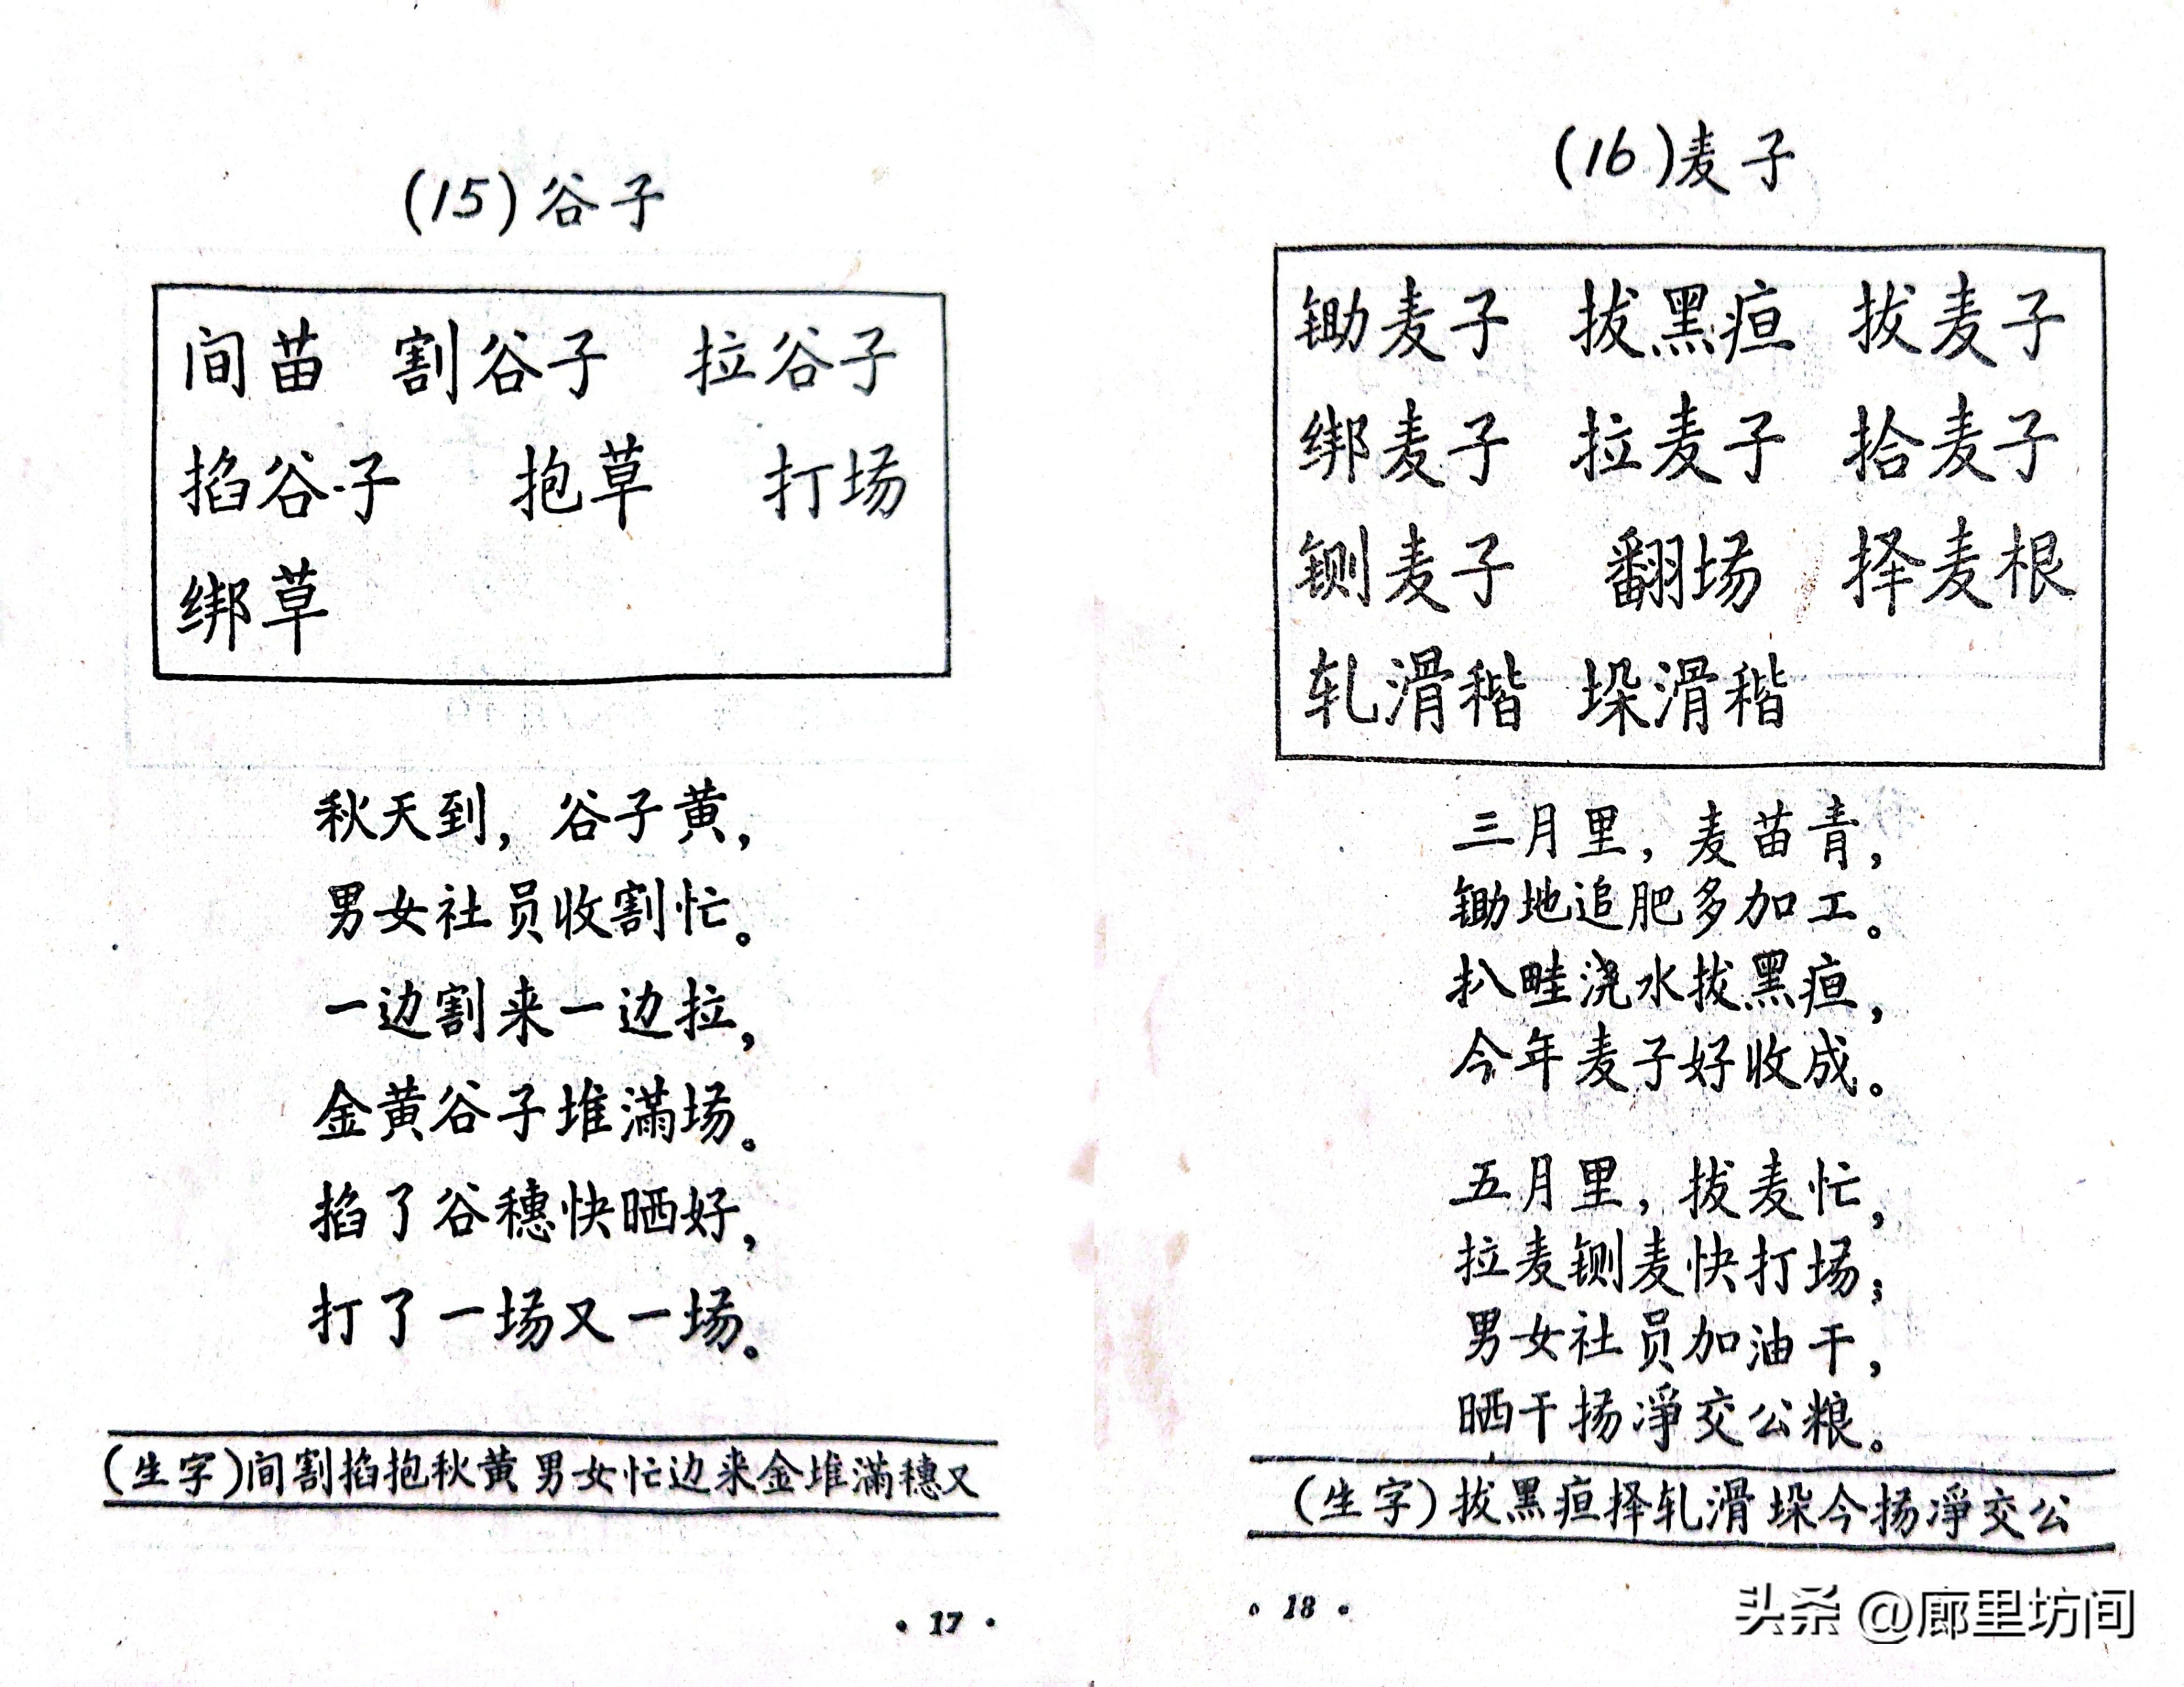 (15)谷子
间苗 割谷子 拉谷子
掐谷子 抱草 打场
绑草
秋天到，谷子黄，
男女社员收割忙。
一边割来一边拉，
金黄谷子堆滿场。
掐了谷穗快晒好，
打了一场又一场。
(生字)间割掐抱秋黄男女忙边来金堆滿穗又
·17·
(16)麦子
锄麦子 拔黑疸 拔麦子
绑麦子 拉麦子 拾麦子
铡麦子 翻场 择麦根
轧滑稭 垛滑稭
三月里，麦苗青，
锄地追肥多加工。
扒畦浇水拔黑疸，
今年麦子好收成。
五月里，拔麦忙，
拉麦铡麦快打场；
男女社员加油干，
晒干扬淨交公粮。
(生字)拔黑疸择轧滑垛今扬淨交公
·18·
头条 @廊里坊间